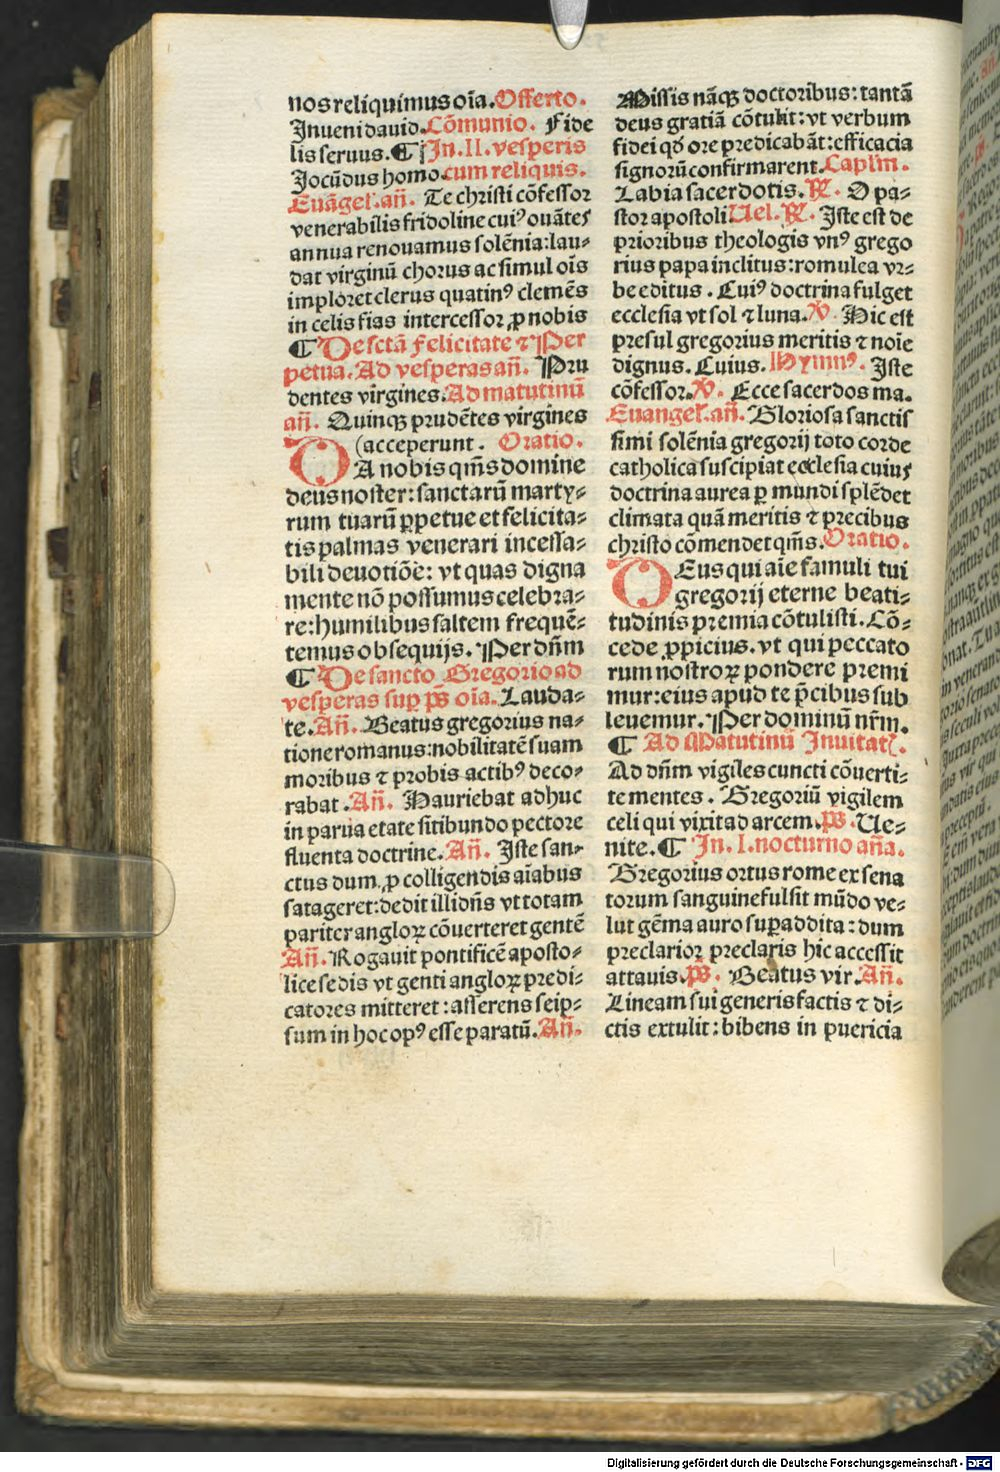 nos reliquimus oīa. Offerto.
Inueni dauid. Cōmunio. Fide
lis seruus. ¶ In .II. vesperis
Jocūdus homo cum reliquis.
Euāgel. añ. Te christi cōfessor
venerabilis fridoline cuiꝰ ouātes
annua renouamus solēnia: lau⸗
dat virginū chorus ac simul oīs
imploret clerus quatinꝰ clemēs
in celis fias intercessor ꝓ nobis
¶ De sctā felicitate ⁊ Per
petua. Ad vesperas añ. Pru
dentes virgines. Ad matutinū
añ. Quinqꝫ prudētes virgines
(acceperunt. Oratio.
DA nobis qm̄s domine
deus noster: sanctarū marty⸗
rum tuarū ꝑpetue et felicita⸗
tis palmas venerari incessa⸗
bili deuotiōe: vt quas digna
mente nō possumus celebra⸗
re: humilibus saltem frequē⸗
temus obsequijs. Per dn̄m
¶ De sancto Gregorio ad
vesperas suꝑ p̄s oīa. Lauda⸗
te. Añ. Beatus gregorius na⸗
tione romanus: nobilitatē suam
moribus ⁊ probis actibꝰ deco⸗
rabat. Añ. Hauriebat adhuc
in parua etate sitibundo pectore
fluenta doctrine. Añ. Iste san⸗
ctus dum ꝓ colligendis aīabus
satageret: dedit illi dn̄s vt totam
pariter angloꝝ cōuerteret gentē
Añ. Rogauit pontificē aposto⸗
lice sedis vt genti angloꝝ predi⸗
catores mitteret: asserens seip⸗
sum in hoc opꝰ esse paratū. Añ.
Missis nāqꝫ doctoribus: tantā
deus gratiā cōtulit: vt verbum
fidei qd̄ ore predicabāt: efficacia
signorū confirmarent. Caplm̄.
Labia sacerdotis. ℟. O pa⸗
stor apostoli. Uel. ℟. Iste est de
prioribus theologis vnꝰ grego
rius papa inclitus: romulea vr⸗
be editus. Cuiꝰ doctrina fulget
ecclesia vt sol ⁊ luna. ℣. Hic est
presul gregorius meritis ⁊ noīe
dignus. Cuius. Hymnꝰ. Iste
cōfessor. ℣. Ecce sacerdos ma.
Euangel. añ. Gloriosa sanctis
simi solēnia gregorij toto corde
catholica suscipiat ecclesia cuius
doctrina aurea ꝑ mundi splēdet
climata quā meritis ⁊ precibus
christo cōmendet qm̄s. Oratio.
DEus qui aīe famuli tui
gregorij eterne beati⸗
tudinis premia cōtulisti. Cō⸗
cede ꝓpicius. vt qui peccato
rum nostroꝝ pondere premi
mur: eius apud te p̄cibus sub
leuemur. Per dominū nr̄m.
¶ Ad Matutinū Inuitat.
Ad dn̄m vigiles cuncti cōuerti⸗
te mentes. Gregoriū vigilem
celi qui vixit ad arcem. Ps̄. Ue⸗
nite. ¶ In. I. nocturno aña.
Gregorius ortus rome ex sena
torum sanguine fulsit mūdo ve⸗
lut gēma auro suꝑaddita: dum
preclarioꝝ preclaris hic accessit
attauis. Ps̄. Beatus vir. Añ.
Lineam sui generis factis ⁊ di⸗
ctis extulit: bibens in puericia
Digitalisierung gefördert durch die Deutsche Forschungsgemeinschaft - DFG